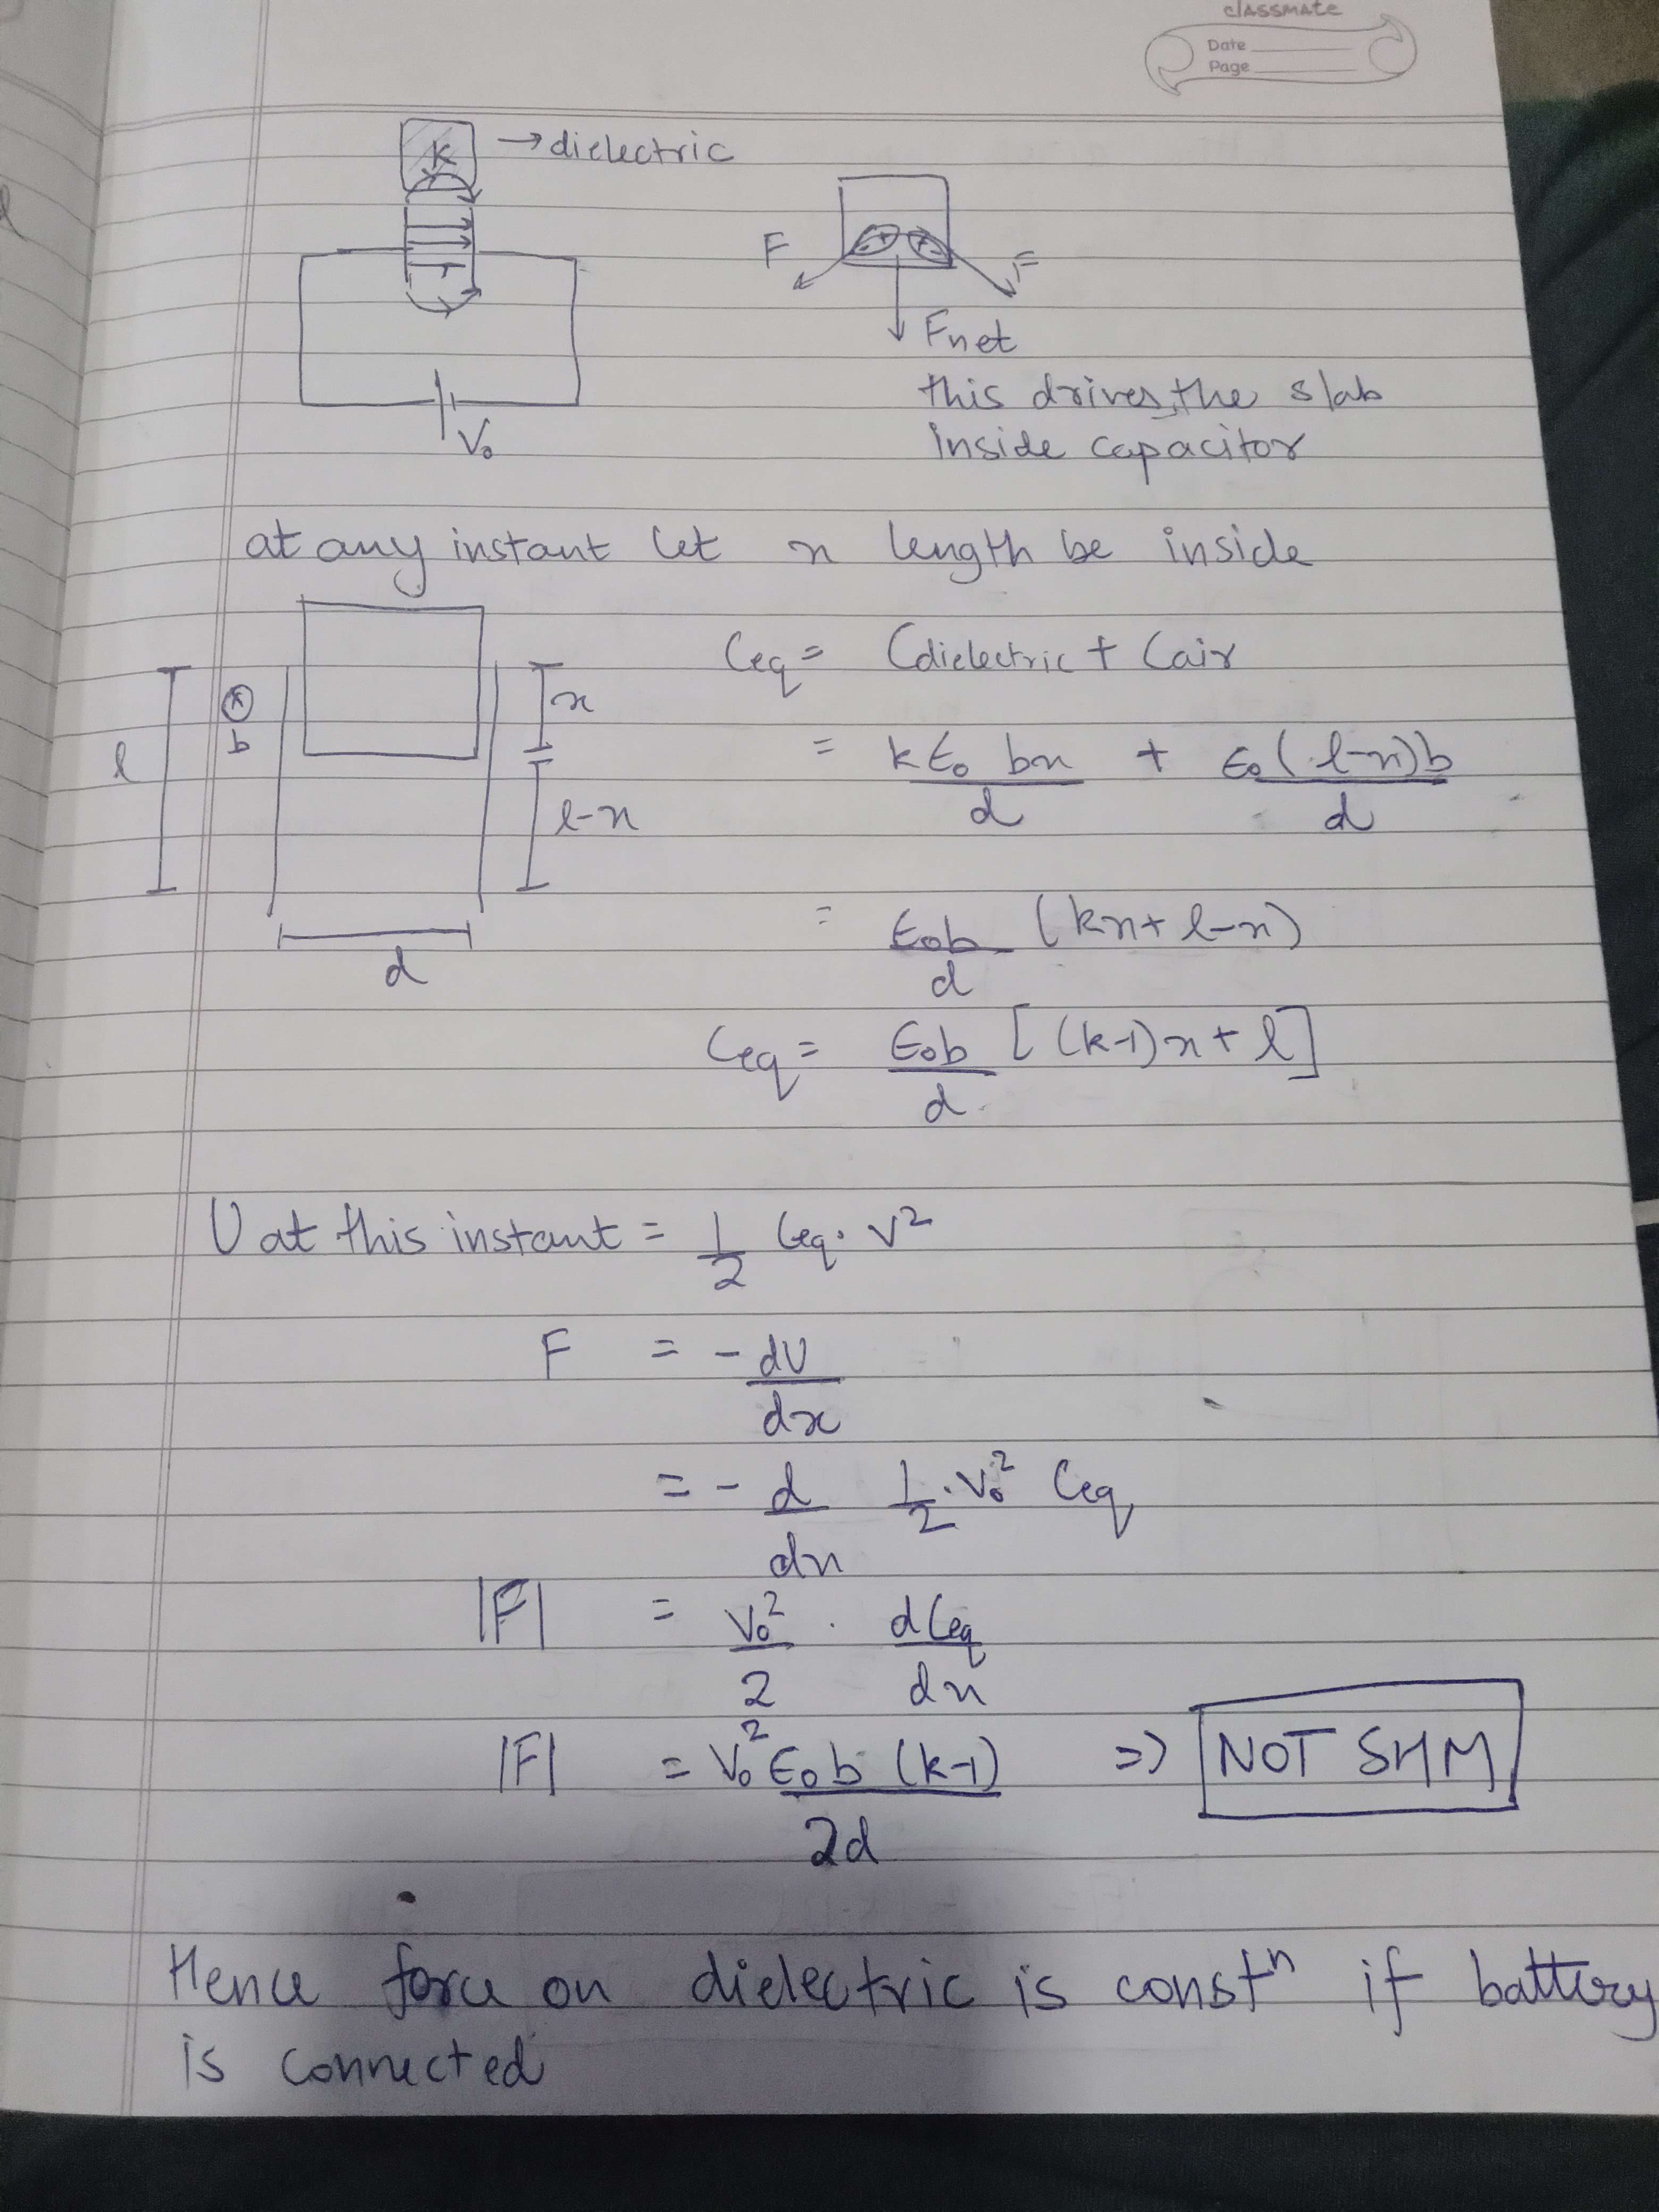 classmate
Date
Page
K → dielectric
F F
Fnet
V₀
this drives the slab
inside capacitor
at any instant let x length be inside
Ceq = Cdielectric + Cair
l
b
x
l-x
d
= kε₀ bx/d + ε₀(l-x)b/d
= ε₀b/d (kx + l-x)
Ceq = ε₀b/d [(k-1)x + l]
U at this instant = 1/2 Ceq. V²
F = -dU/dx
= - d/dx 1/2 . V₀² Ceq
|F| = V₀²/2 . dCeq/dx
|F| = V₀² ε₀ b (k-1)/2d ⇒ NOT SHM
Hence force on dielectric is constⁿ if battery
is connected